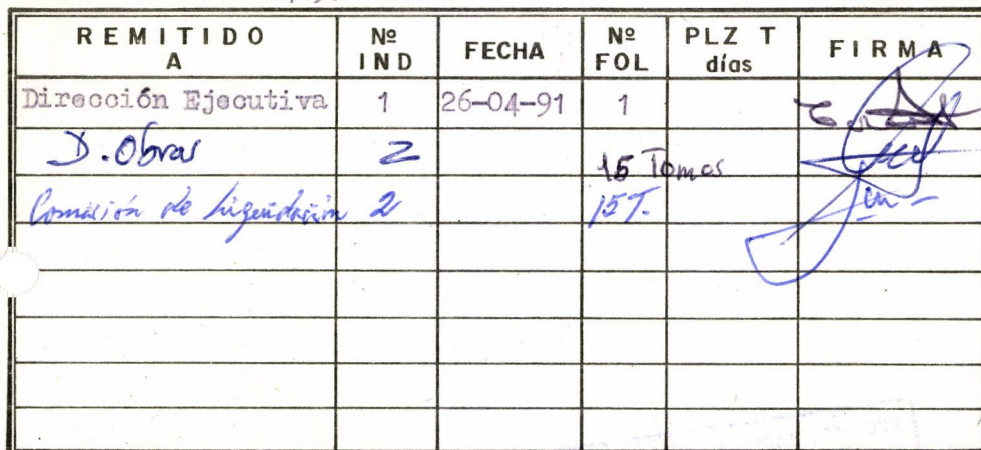 REMITIDO A Nº IND FECHA Nº FOL PLZ T días FIRMA
Dirección Ejecutiva 1 26-04-91 1
D. Obras 2 15 Tomos
Comisión de Liquidación 2 15T.